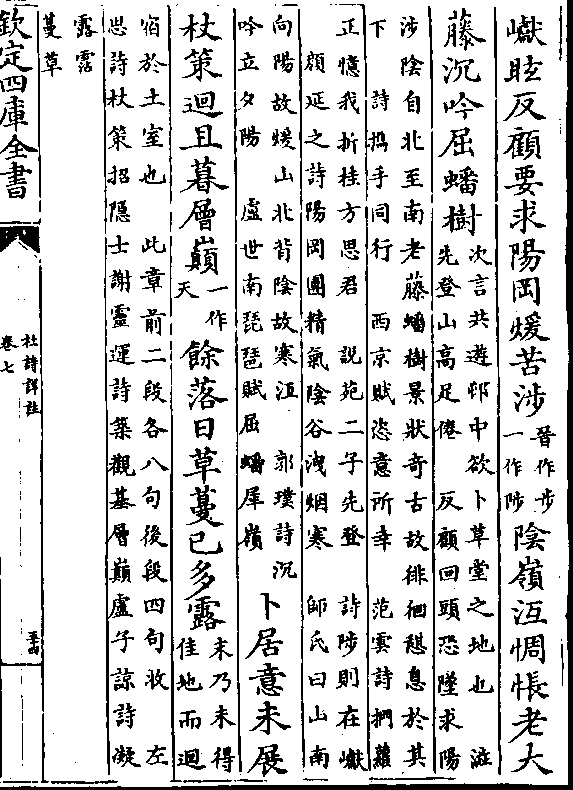 巘眩反顧要求陽岡煖苦涉晉作步一作陟陰嶺沍惆悵老大
藤沉吟屈蟠樹次言共遊邨中欲卜草堂之地也 澁
先登山高足倦 反顧回頭恐墜求陽
涉陰自北至南老藤蟠樹景狀奇古故徘徊憇息於其
下 詩攜手同行 西京賦恣意所幸 范雲詩捫蘿
正憶我折桂方思君 說苑二子先登 詩陟則在巘
顔延之詩陽岡團精氣陰谷洩烟寒 師氏曰山南
向陽故煖山北背陰故寒沍 郭璞詩沉
吟立夕陽 盧世南琵琶賦屈蟠犀嶺卜居意未展
杖策迴且暮層巔一作天餘落日草蔓已多露末乃未得佳地而迴
宿於土室也 此章前二段各八句後段四句收 左
思詩杖策招隱士謝靈運詩築觀基層巔盧子諒詩凝
露霑
蔓草
欽定四庫全書
杜詩詳註
卷七